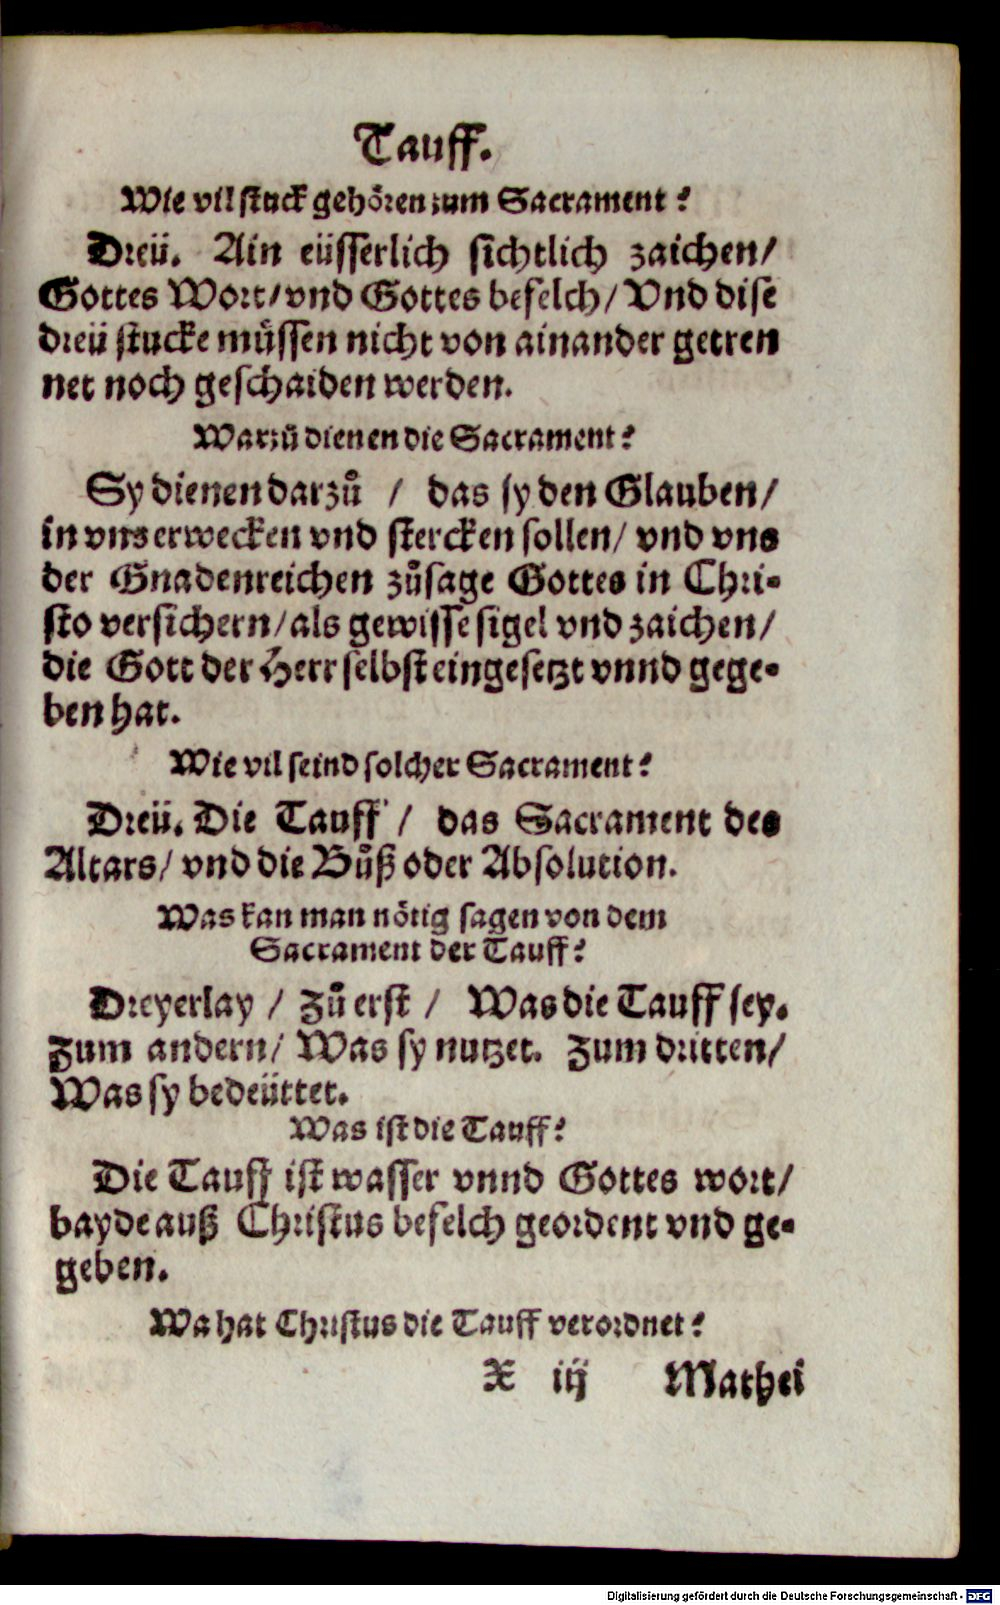 Tauff.
Wie vil stuck gehören zum Sacrament?
Dreü. Ain eüsserlich sichtlich zaichen/
Gottes Wort/ vnd Gottes befelch/ Vnd dise
dreü stucke müssen nicht von ainander getren
net noch geschaiden werden.
Warzů dienen die Sacrament?
Sy dienen darzů / das sy den Glauben/
in vns erwecken vnd stercken sollen/ vnd vns
der Gnadenreichen zůsage Gottes in Chri-
sto versichern/ als gewisse sigel vnd zaichen/
die Gott der Herr selbst eingesetzt vnnd gege-
ben hat.
Wie vil seind solcher Sacrament?
Dreü. Die Tauff / das Sacrament des
Altars/ vnd die Bůß oder Absolution.
Was kan man nötig sagen von dem
Sacrament der Tauff?
Dreyerlay / Zů erst / Was die Tauff sey.
Zum andern/ Was sy nutzet. Zum dritten/
Was sy bedeüttet.
Was ist die Tauff?
Die Tauff ist wasser vnnd Gottes wort/
bayde auß Christus befelch geordent vnd ge-
geben.
Wa hat Christus die Tauff verordnet?
X iij Mathei
Digitalisierung gefördert durch die Deutsche Forschungsgemeinschaft - DFG